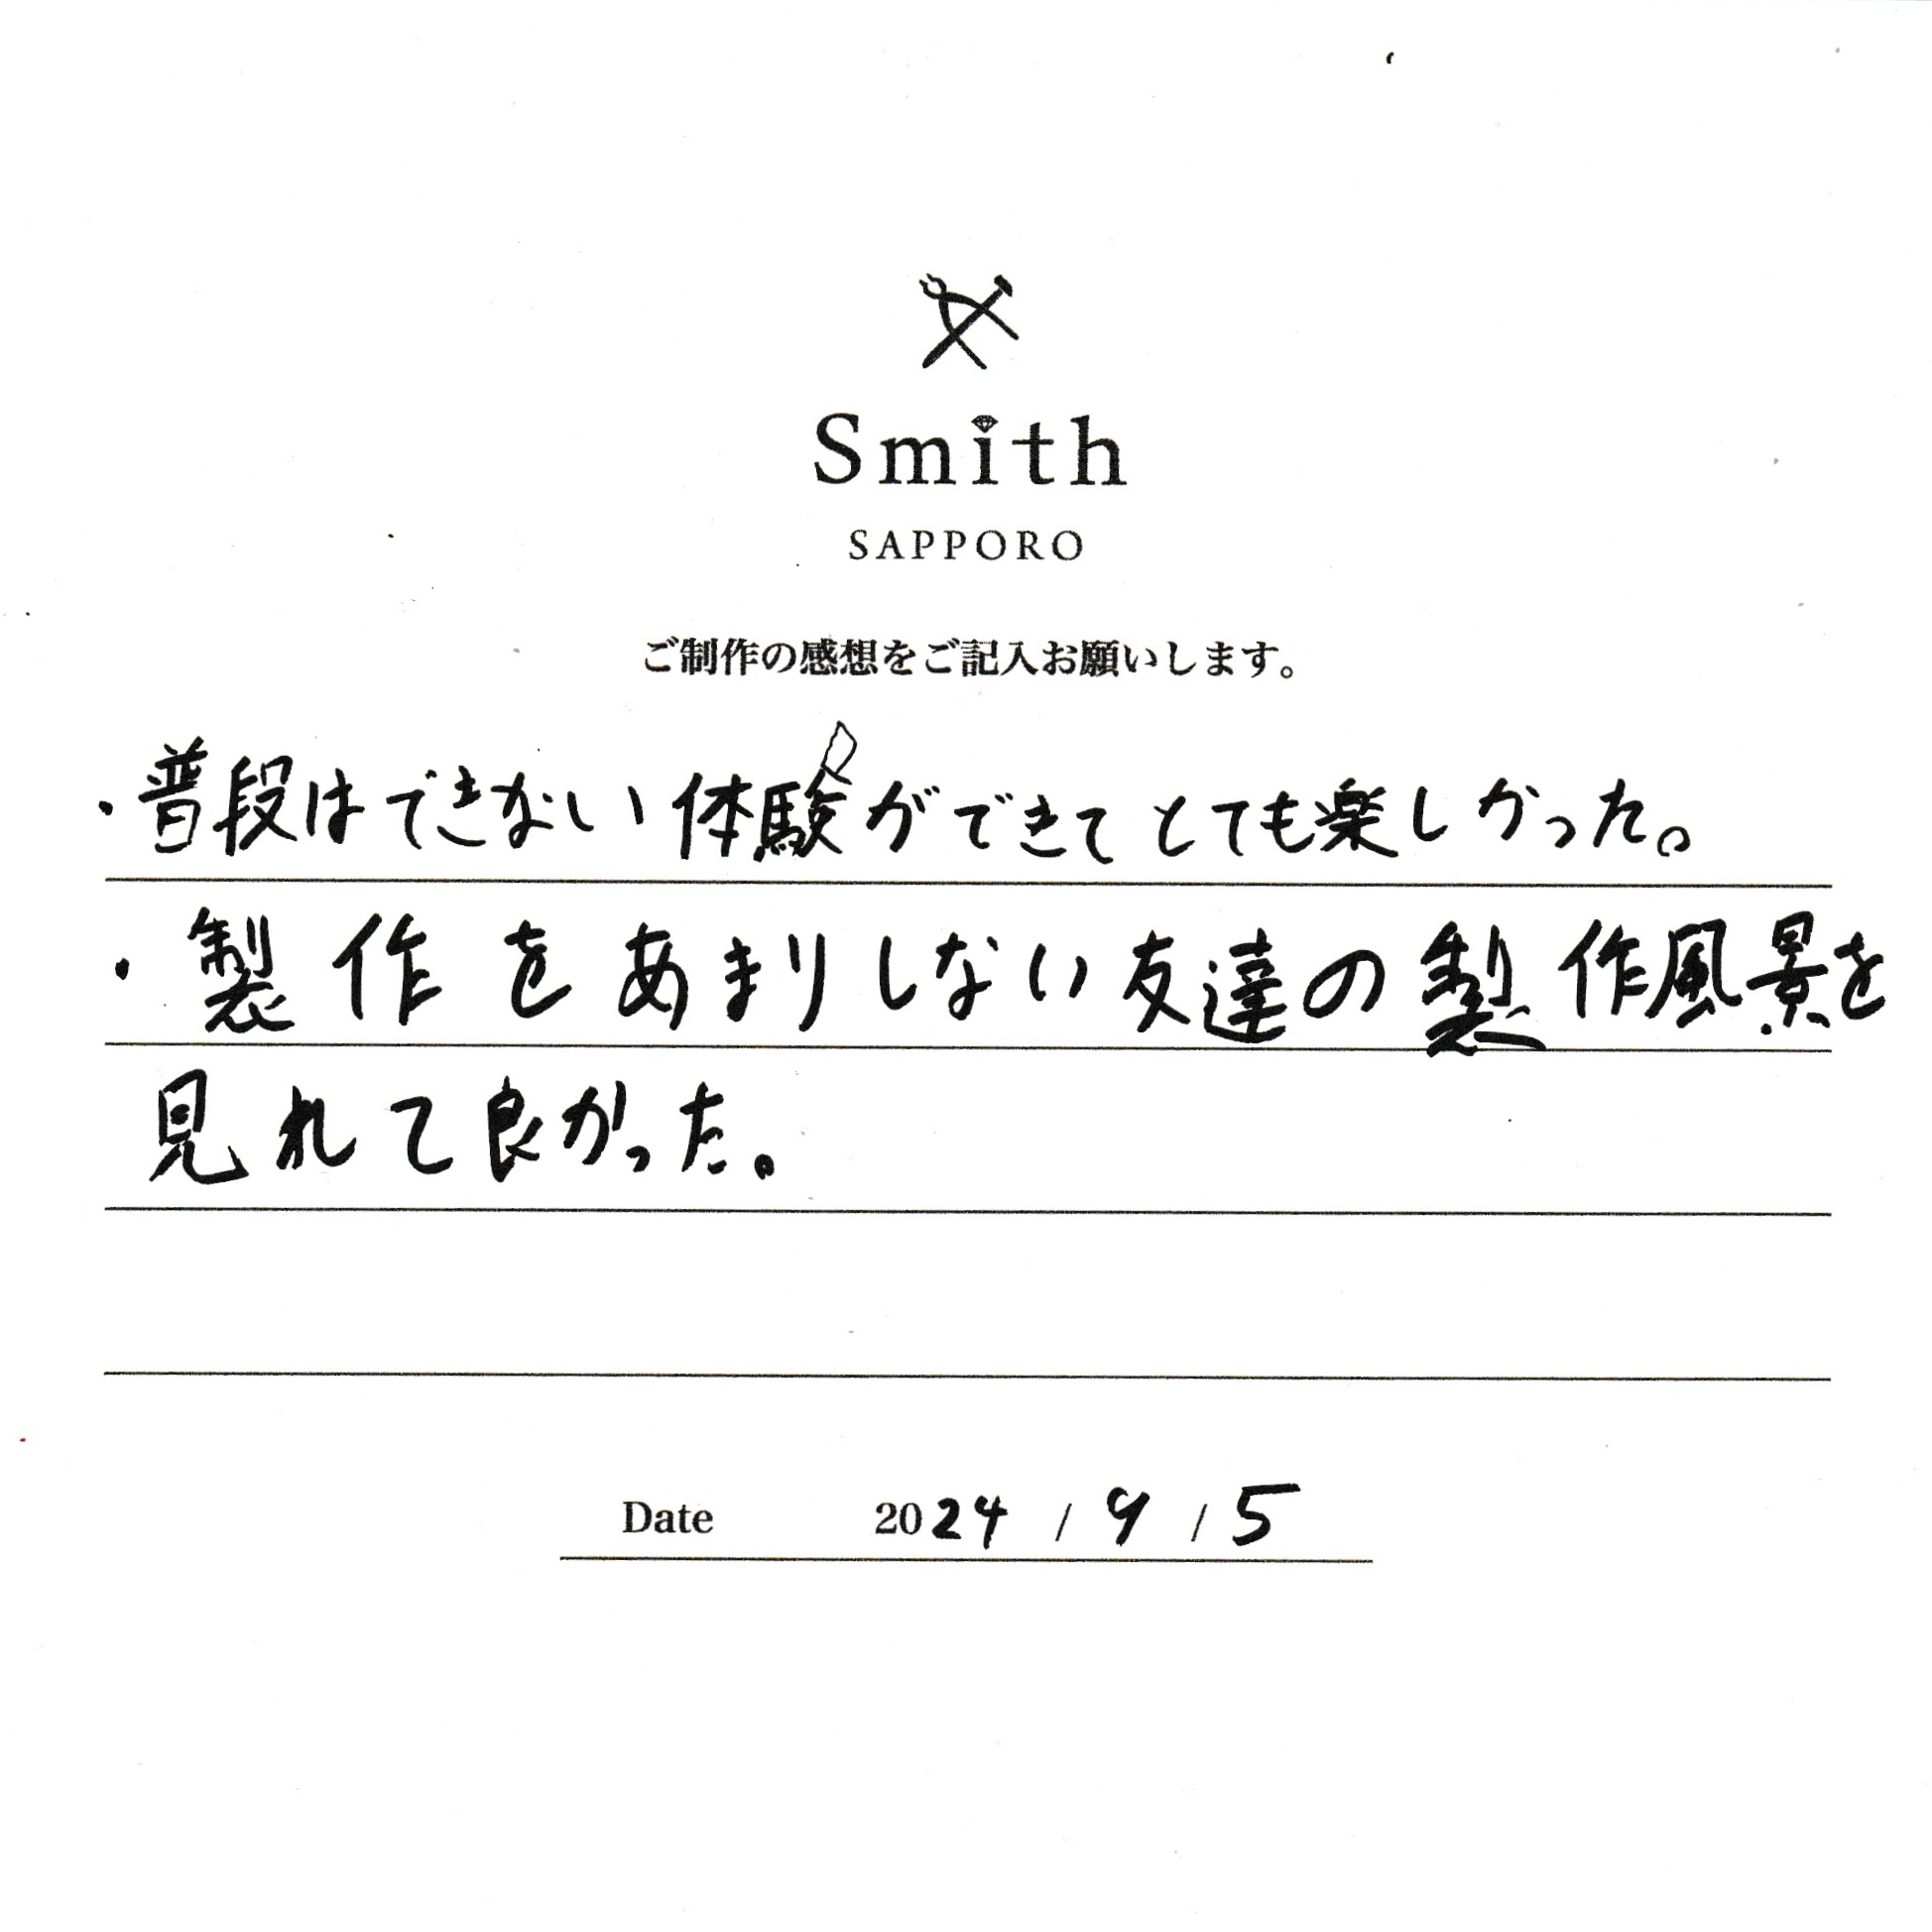 Smith
SAPPORO
ご制作の感想をご記入お願いします。
・普段はできない体験ができてとても楽しかった。
・製作をあまりしない友達の製作風景を
見れて良かった。
Date 2024 / 9 / 5